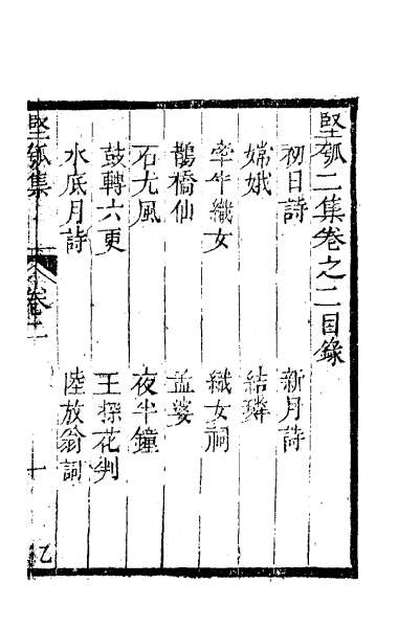 堅瓠二集卷之二目錄
初日詩 新月詩
嫦娥 結璘
牽牛織女 織女祠
鵲橋仙 孟婆
石尤風 夜半鐘
鼓轉六更 王探花判
水底月詩 陸放翁詞
堅瓠集 卷二 一